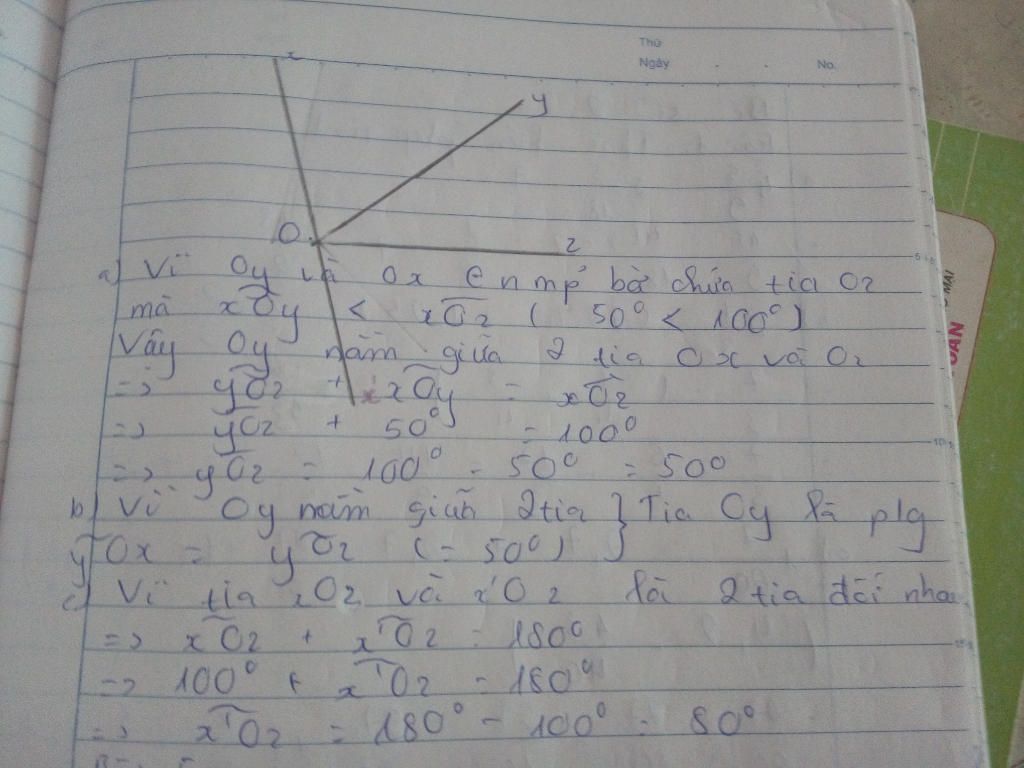 Thứ
Ngày . . No.
x
y
O
z
a) Vì Oy và Ox ∈ n mp bờ chứa tia Oz
mà xOy < xOz ( 50° < 100° )
Vậy Oy nằm giữa 2 tia Ox và Oz
=> yOz + xOy = xOz
x'
=> yOz + 50° = 100°
=> yOz = 100° - 50° = 50°
b) Vì Oy nằm giữa 2 tia } Tia Oy là plg
yOx = yOz ( = 50° )
c) Vì tia xOz và x'Oz là 2 tia đối nhau
=> xOz + x'Oz = 180°
=> 100° + x'Oz = 180°
=> x'Oz = 180° - 100° = 80°